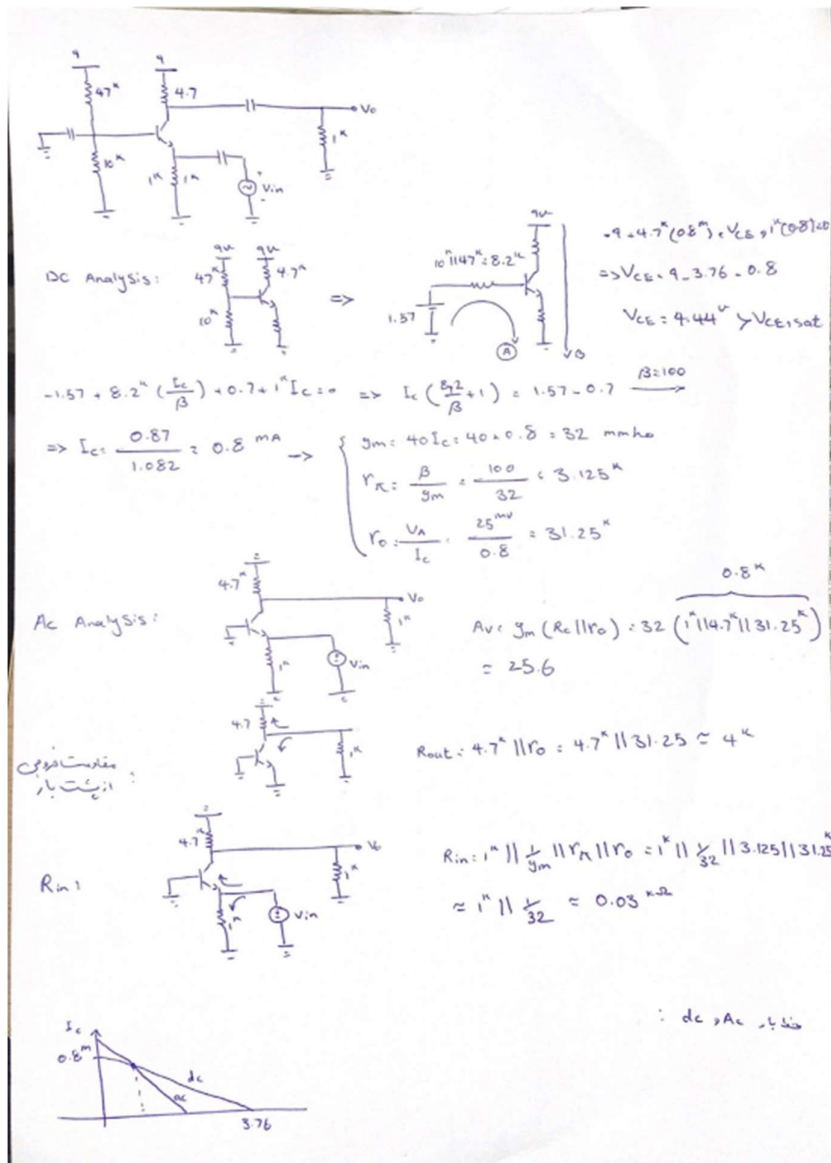 9 9
47ᵏ 4.7
Vo
10ᵏ 1ᵏ 1ᵏ Vin 1ᵏ
+
-
DC Analysis:
9v 9v
47ᵏ 4.7ᵏ
10ᵏ
=>
9v
10ᵏ||47ᵏ = 8.2ᵏ
1.57
A
B
-9+4.7ᵏ(0.8ᵐ)+VCE+1ᵏ(0.8)=0
=> VCE = 9-3.76-0.8
VCE = 4.44ᵛ > VCE,sat
-1.57 + 8.2ᵏ (Ic/β) + 0.7 + 1ᵏ Ic = 0 => Ic (8.2/β + 1) = 1.57 - 0.7 β=100
=> Ic = 0.87/1.082 = 0.8 mA →
gm = 40 Ic = 40 × 0.8 = 32 mmho
rπ = β/gm = 100/32 = 3.125ᵏ
ro = VA/Ic = 25ᵐᵛ/0.8 = 31.25ᵏ
Ac Analysis:
4.7ᵏ
Vo
1ᵏ
1ᵏ
Vin
0.8ᵏ
Av = gm (Rc||ro) = 32 (1ᵏ||4.7ᵏ||31.25ᵏ)
= 25.6
مقاومت خروجی
از پشت بار:
4.7
1ᵏ
Rout = 4.7ᵏ || ro = 4.7ᵏ || 31.25 ≈ 4ᵏ
Rin:
4.7ᵏ
Vo
1ᵏ
1ᵏ
Vin
Rin = 1ᵏ || 1/gm || rπ || ro = 1ᵏ || 1/32 || 3.125 || 31.25
≈ 1ᵏ || 1/32 ≈ 0.03 ᵏΩ
خط بار dc و Ac :
Ic
0.8ᵐ
dc
ac
3.76